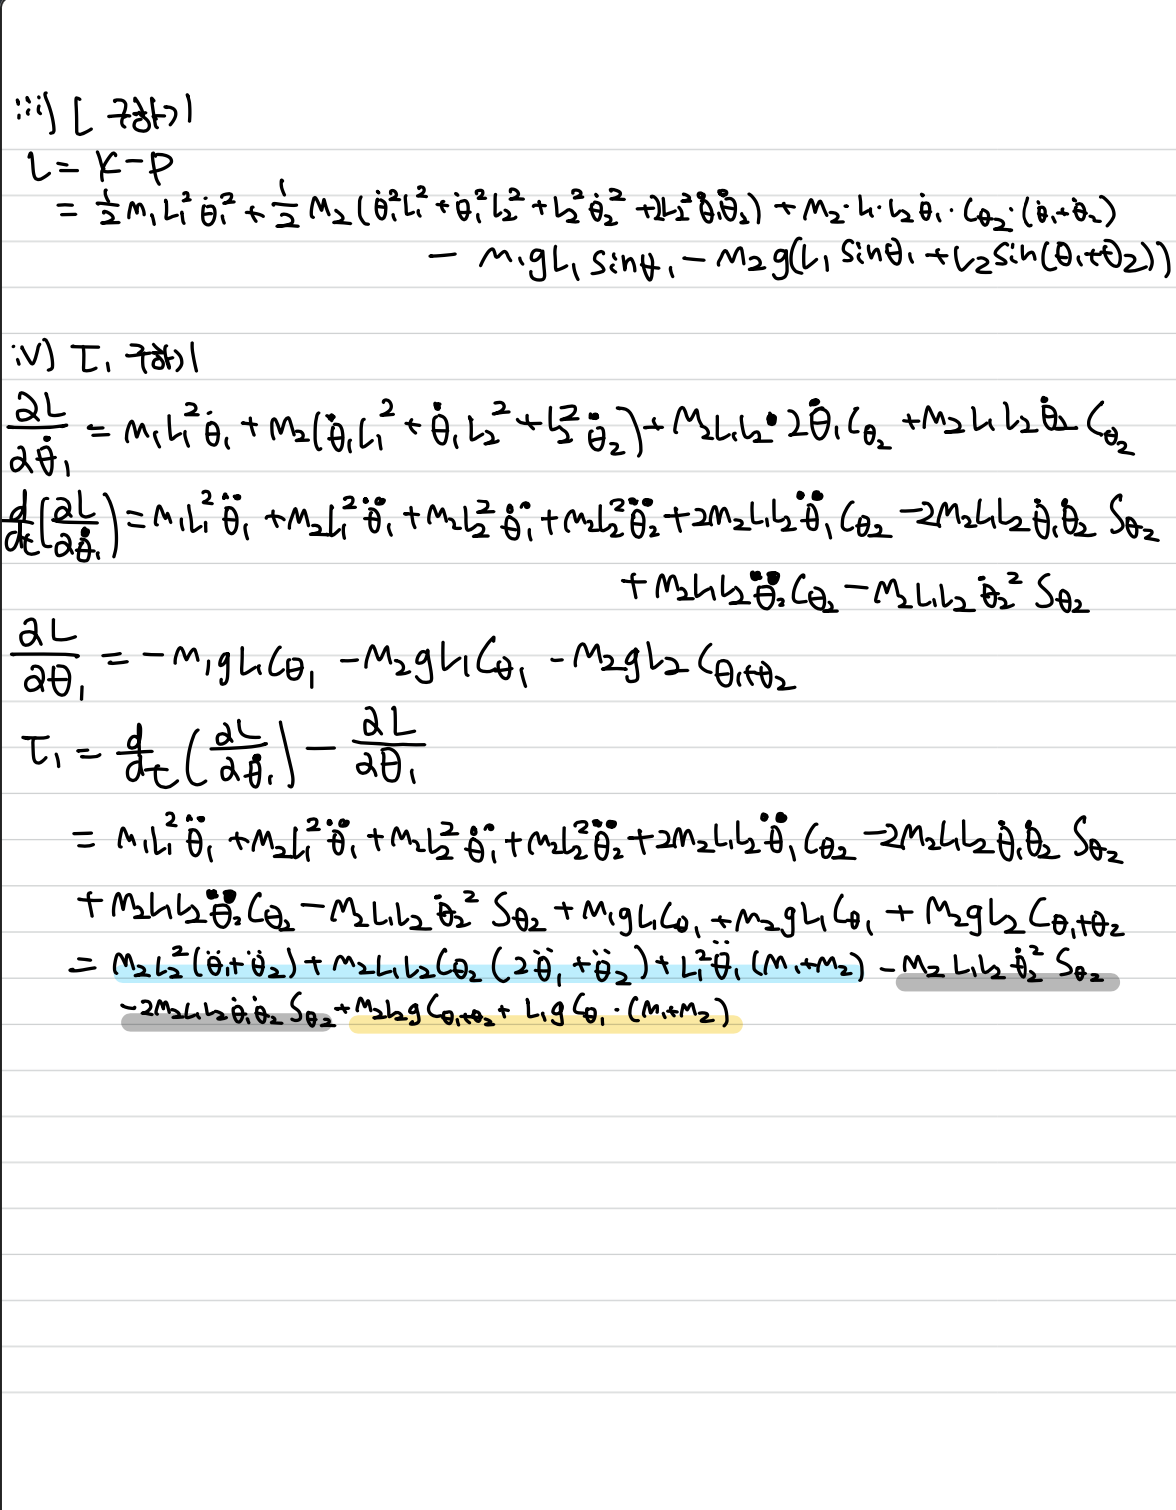 iii) L 구하기
L = K-P
= 1/2 m₁L₁² θ̇₁² + 1/2 m₂(θ̇₁²L₁² + θ̇₁²L₂² + L₂²θ̇₂² + 2L₂²θ̇₁θ̇₂) + m₂·L₁·L₂θ̇₁·Cθ₂·(θ̇₁+θ̇₂)
- m₁gL₁ sinθ₁ - m₂g(L₁ sinθ₁ + L₂sin(θ₁+θ₂))
iv) τ₁ 구하기
∂L/∂θ̇₁ = m₁L₁²θ̇₁ + m₂(θ̇₁L₁² + θ̇₁L₂² + L₂²θ̇₂) + m₂L₁L₂·2θ̇₁Cθ₂ + m₂L₁L₂θ̇₂Cθ₂
d/dt(∂L/∂θ̇₁) = m₁L₁²θ̈₁ + m₂L₁²θ̈₁ + m₂L₂²θ̈₁ + m₂L₂²θ̈₂ + 2m₂L₁L₂θ̈₁Cθ₂ - 2m₂L₁L₂θ̇₁θ̇₂ Sθ₂
+ m₂L₁L₂θ̈₂Cθ₂ - m₂L₁L₂θ̇₂² Sθ₂
∂L/∂θ₁ = -m₁gL₁Cθ₁ - m₂gL₁Cθ₁ - m₂gL₂Cθ₁+θ₂
τ₁ = d/dt(∂L/∂θ̇₁) - ∂L/∂θ₁
= m₁L₁²θ̈₁ + m₂L₁²θ̈₁ + m₂L₂²θ̈₁ + m₂L₂²θ̈₂ + 2m₂L₁L₂θ̈₁Cθ₂ - 2m₂L₁L₂θ̇₁θ̇₂ Sθ₂
+ m₂L₁L₂θ̈₂Cθ₂ - m₂L₁L₂θ̇₂² Sθ₂ + m₁gL₁Cθ₁ + m₂gL₁Cθ₁ + m₂gL₂Cθ₁+θ₂
= m₂L₂²(θ̈₁+θ̈₂) + m₂L₁L₂Cθ₂(2θ̈₁+θ̈₂) + L₁²θ̈₁(m₁+m₂) - m₂L₁L₂θ̇₂² Sθ₂
-2m₂L₁L₂θ̇₁θ̇₂ Sθ₂ + m₂L₂gCθ₁+θ₂ + L₁gCθ₁·(m₁+m₂)